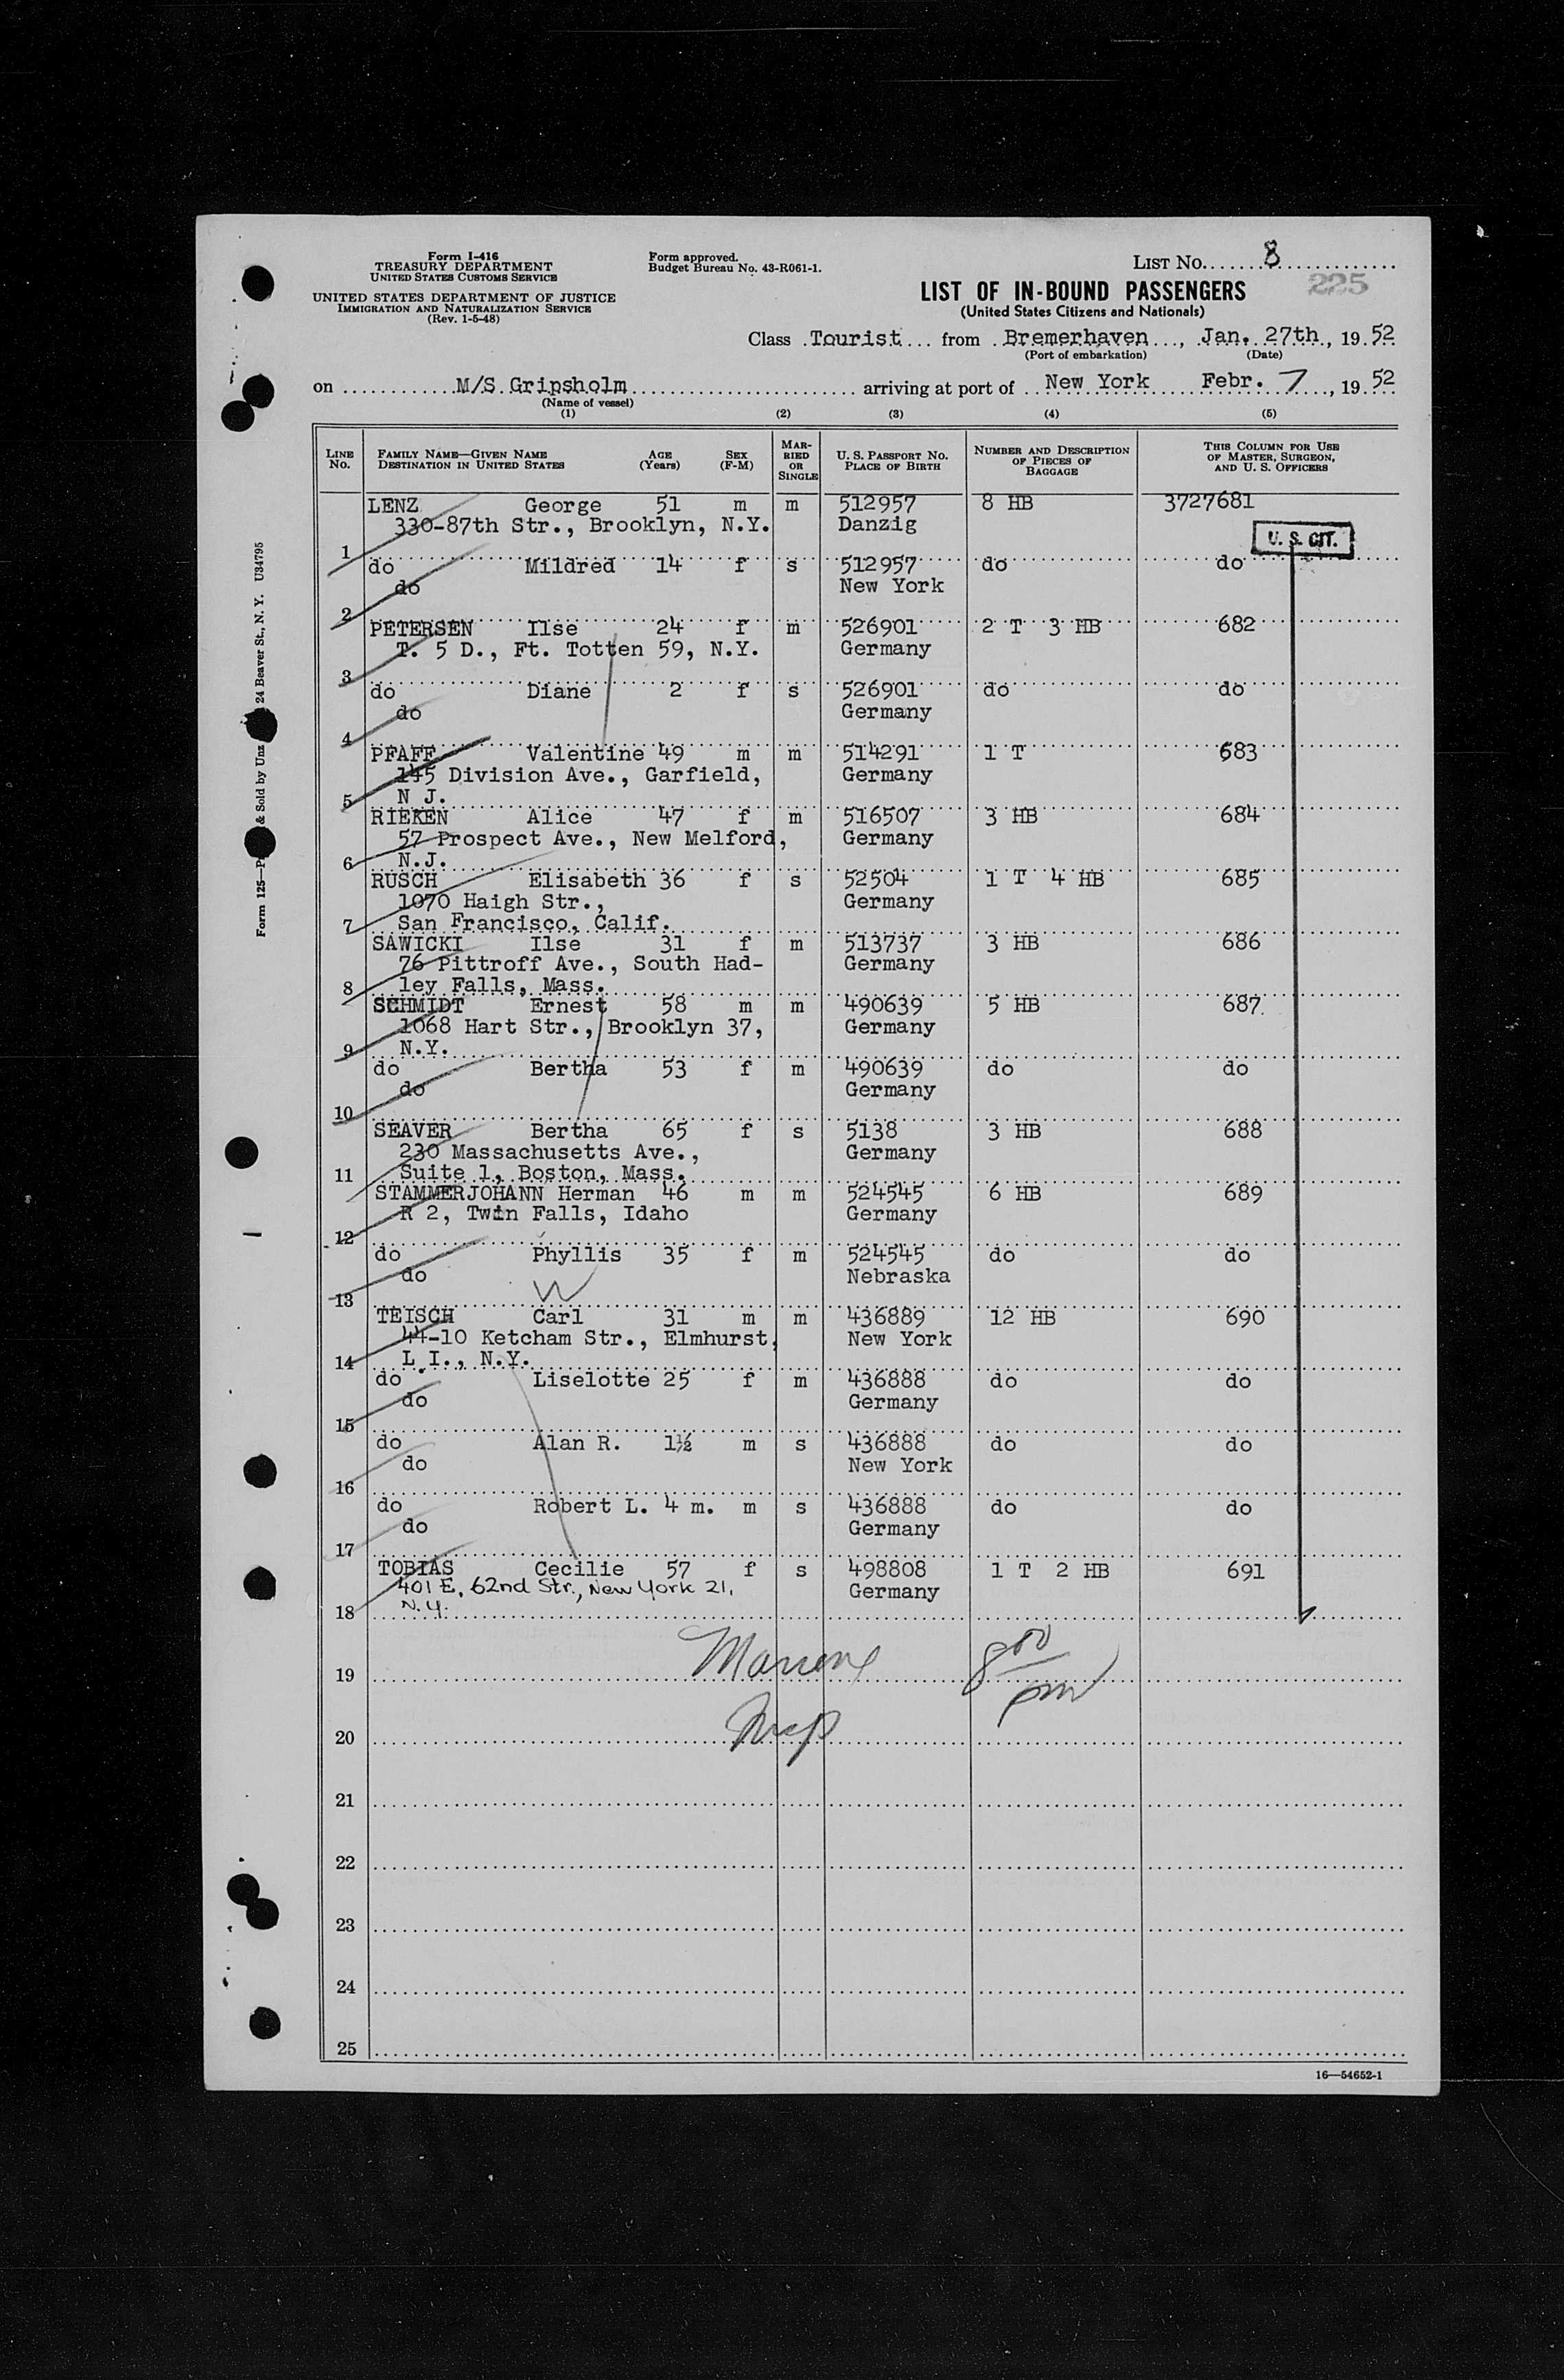 Form I-416
TREASURY DEPARTMENT
UNITED STATES CUSTOMS SERVICE
UNITED STATES DEPARTMENT OF JUSTICE
IMMIGRATION AND NATURALIZATION SERVICE
(Rev. 1-5-48)
Form approved.
Budget Bureau No. 43-R061-1.
LIST No. 8
225
LIST OF IN-BOUND PASSENGERS
(United States Citizens and Nationals)
Class Tourist from Bremerhaven, Jan. 27th, 1952
(Port of embarkation) (Date)
on M/S Gripsholm arriving at port of New York Febr. 7, 1952
(Name of vessel)
(1) (2) (3) (4) (5)
LINE No. FAMILY NAME—GIVEN NAME DESTINATION IN UNITED STATES AGE (Years) SEX (F-M) MARRIED OR SINGLE U. S. PASSPORT NO. PLACE OF BIRTH NUMBER AND DESCRIPTION OF PIECES OF BAGGAGE THIS COLUMN FOR USE OF MASTER, SURGEON, AND U. S. OFFICERS
LENZ George 51 m m 512957 8 HB 3727681
330-87th Str., Brooklyn, N.Y. Danzig
U. S. CIT.
1
do Mildred 14 f s 512957 do do
do New York
2
PETERSEN Ilse 24 f m 526901 2 T 3 HB 682
T. 5 D., Ft. Totten 59, N.Y. Germany
3
do Diane 2 f s 526901 do do
do Germany
4
PFAFF Valentine 49 m m 514291 1 T 683
145 Division Ave., Garfield, Germany
5 N J.
RIEKEN Alice 47 f m 516507 3 HB 684
57 Prospect Ave., New Melford, Germany
6 N.J.
RUSCH Elisabeth 36 f s 52504 1 T 4 HB 685
1070 Haigh Str., Germany
7 San Francisco, Calif.
SAWICKI Ilse 31 f m 513737 3 HB 686
76 Pittroff Ave., South Had- Germany
8 ley Falls, Mass.
SCHMIDT Ernest 58 m m 490639 5 HB 687
1068 Hart Str., Brooklyn 37, Germany
9 N.Y.
do Bertha 53 f m 490639 do do
do Germany
10
SEAVER Bertha 65 f s 5138 3 HB 688
230 Massachusetts Ave., Germany
11 Suite 1, Boston, Mass.
STAMMERJOHANN Herman 46 m m 524545 6 HB 689
R 2, Twin Falls, Idaho Germany
12
do Phyllis 35 f m 524545 do do
do Nebraska
13
TEISCH Carl 31 m m 436889 12 HB 690
44-10 Ketcham Str., Elmhurst, New York
14 L.I., N.Y.
do Liselotte 25 f m 436888 do do
do Germany
15
do Alan R. 1½ m s 436888 do do
do New York
16
do Robert L. 4 m. m s 436888 do do
do Germany
17
TOBIAS Cecilie 57 f s 498808 1 T 2 HB 691
401 E. 62nd Str., New York 21, Germany
18 N.Y.
19 8 00 pm
20
21
22
23
24
25
16—54652-1
Form 125—P & Sold by Unz 24 Beaver St., N. Y. U34795